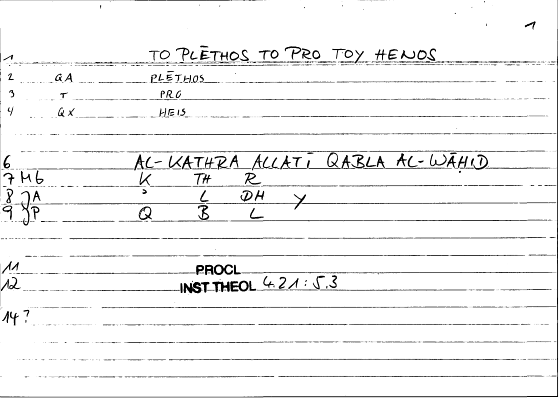 1
1 TO PLĒTHOS TO PRO TOY HENOS
2 QA PLĒTHOS
3 T PRO
4 QX HEIS
6 AL-KATHRA ALLATĪ QABLA AL-WĀḤID
7 Mb K TH R
8 A ʾ L DH Y
9 P Q B L
11 PROCL
12 INST THEOL 4.21:5.3
14?